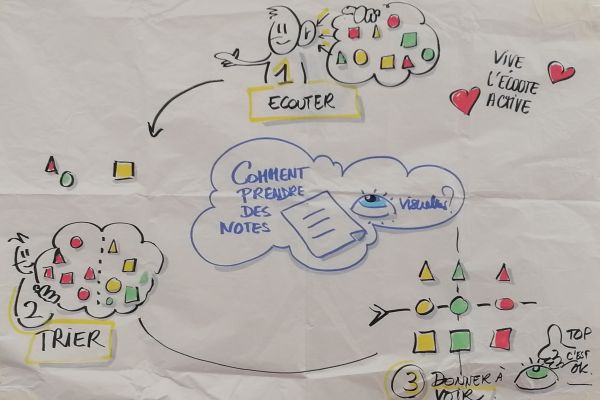 1
ECOUTER
VIVE
L'ÉCOUTE
ACTIVE
COMMENT
PRENDRE
DES
NOTES
visuelles?
2
TRIER
3 DONNER À
VOIR
TOP
C'EST
OK.